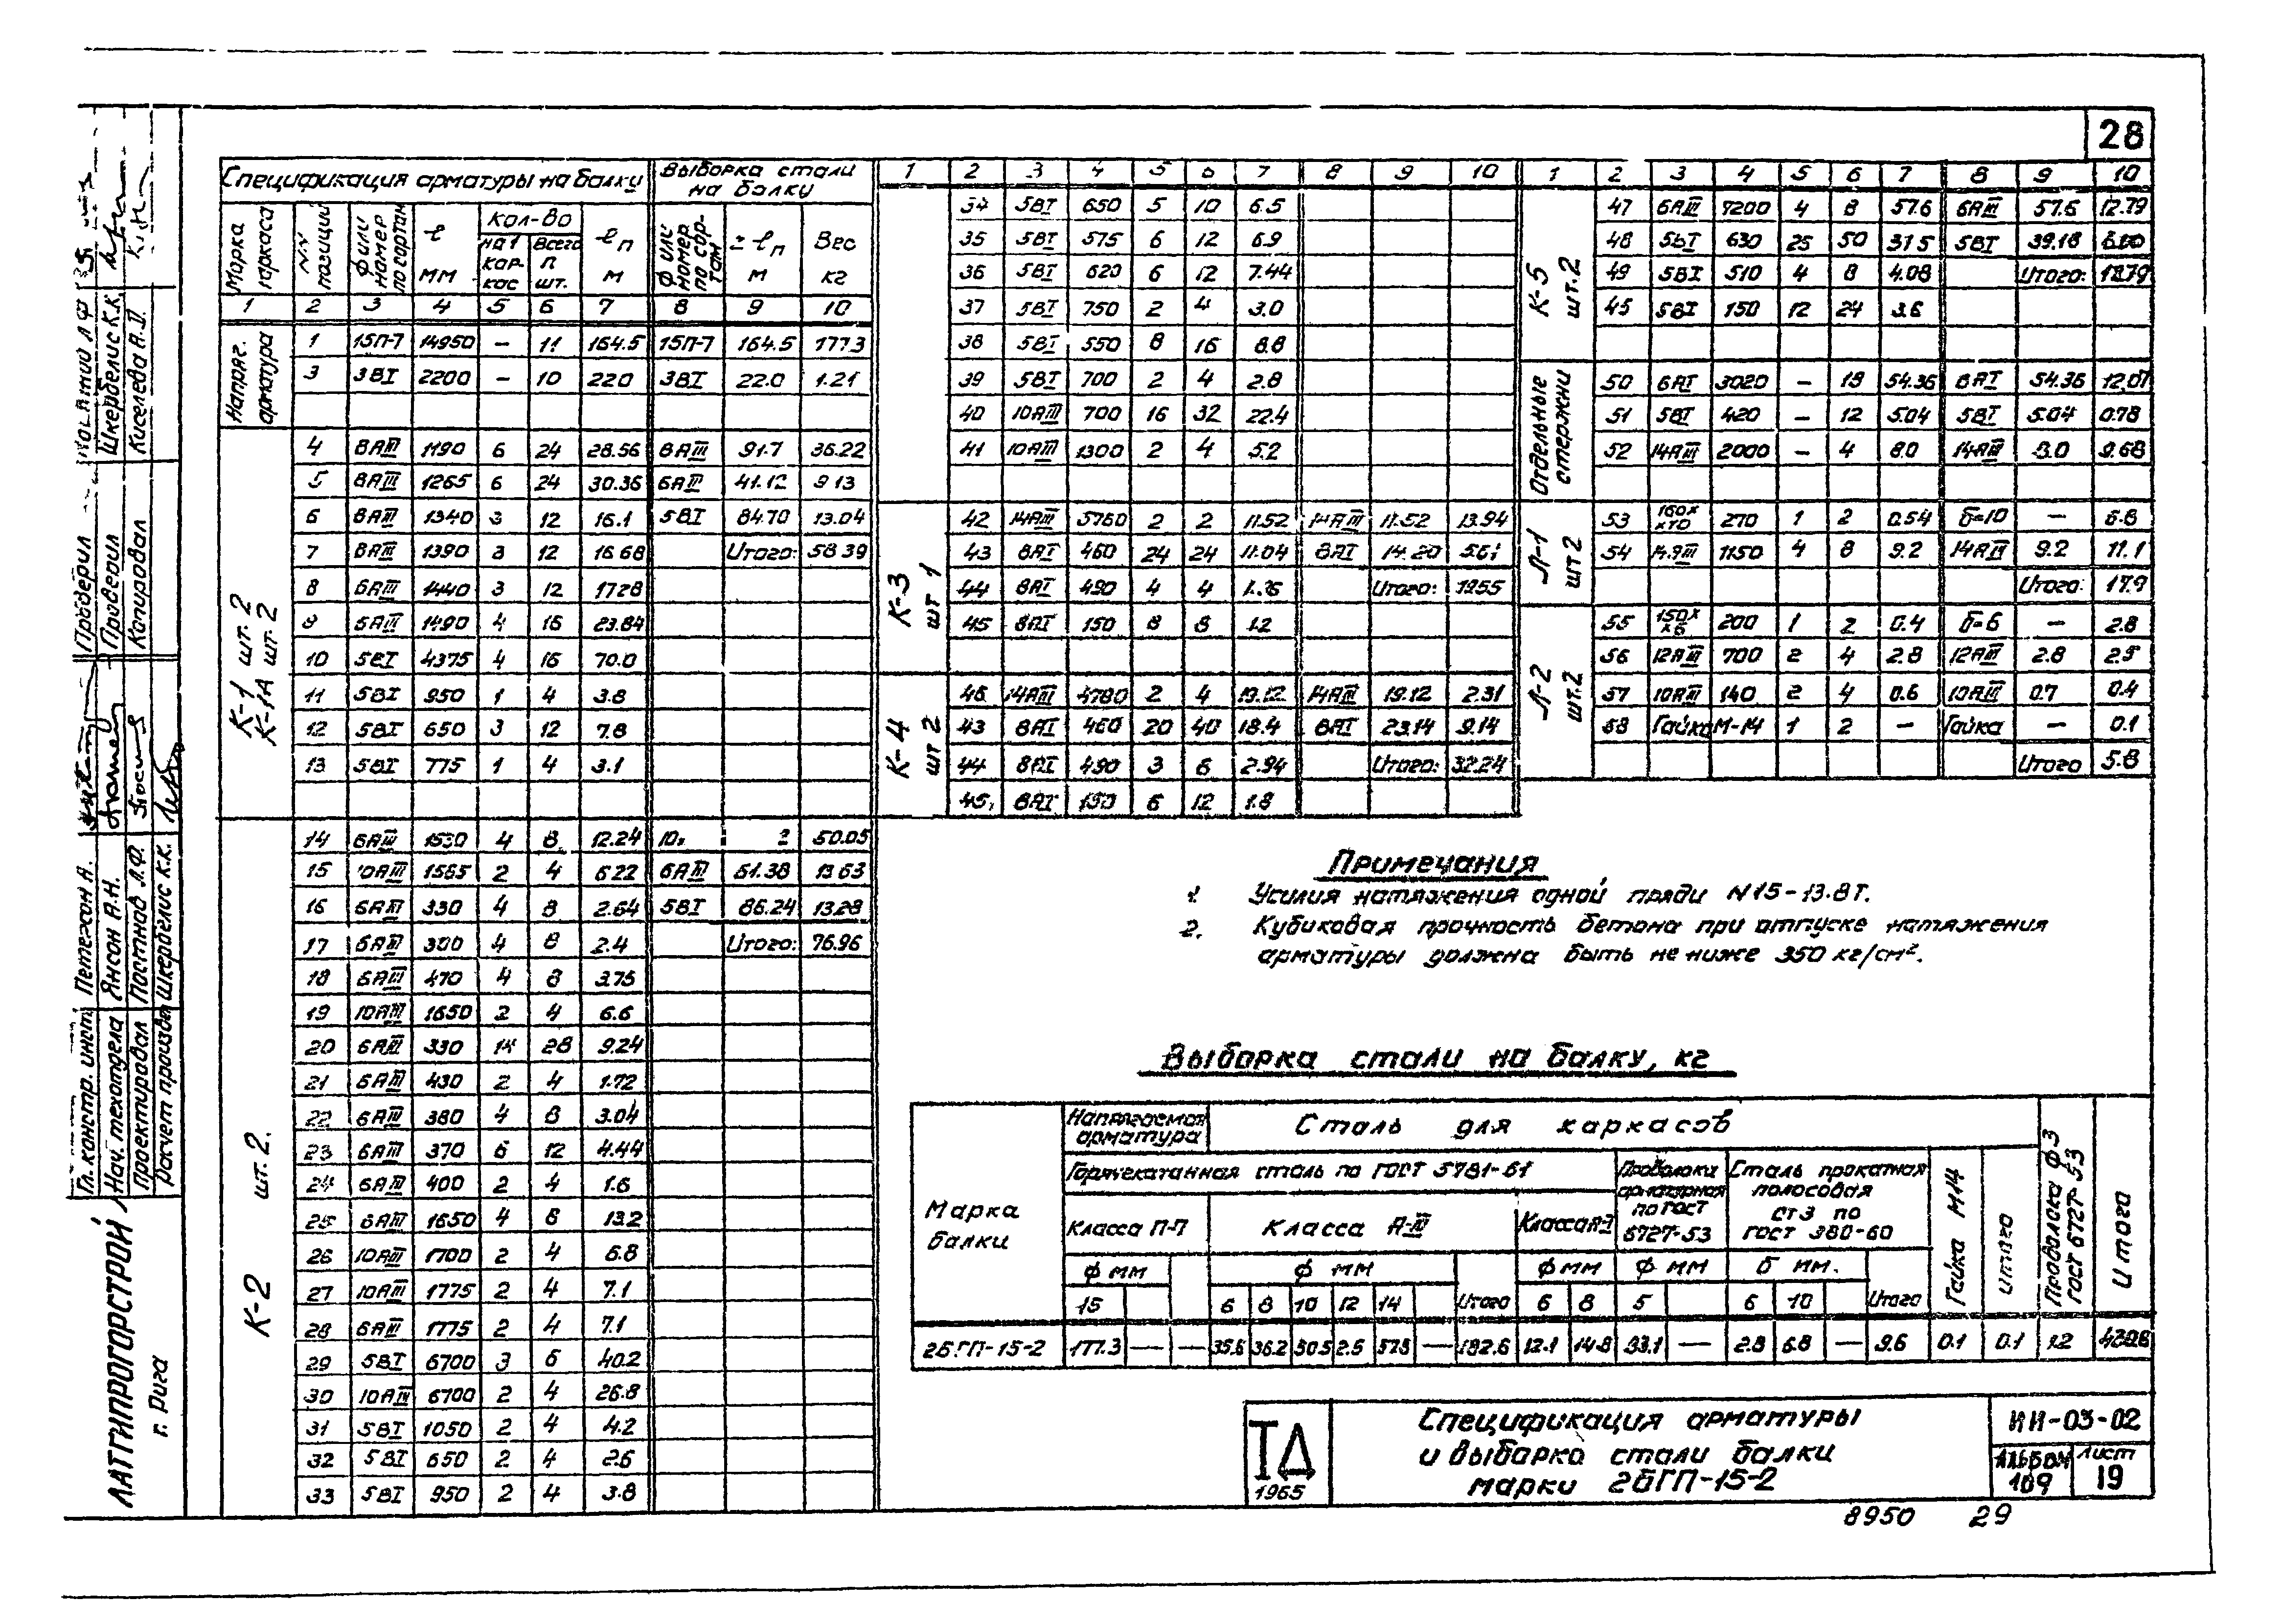 28
Спецификация арматуры на балку
Выборка стали на балку
Марка каркаса | NN позиций | ф или номер по сортам | ℓ мм | Кол-во | на 1 каркас | Всего п шт. | ℓп м | ф или номер по сортам | Σℓп м | Вес кг
1 2 3 4 5 6 7 8 9 10
Напряг. арматура
1 15П-7 14950 — 11 164.5 15П-7 164.5 177.3
3 3ВI 2200 — 10 220 3ВI 22.0 1.21
К-1 шт. 2
К-1А шт. 2
4 8АIII 1190 6 24 28.56 8АIII 91.7 36.22
5 8АIII 1265 6 24 30.36 6АIII 41.12 9 13
6 8АIII 1340 3 12 16.1 5ВI 84.70 13.04
7 8АIII 1390 3 12 16.68 Итого: 58 39
8 6АIII 1440 3 12 1728
9 6АIII 1490 4 16 23.84
10 5ВI 4375 4 16 70.0
11 5ВI 950 1 4 3.8
12 5ВI 650 3 12 7.8
13 5ВI 775 1 4 3.1
К-2 шт. 2.
14 6АIII 1530 4 8 12.24 50.05
15 10АIII 1585 2 4 6 22 6АIII 61.38 13 63
16 6АIII 330 4 8 2.64 5ВI 86.24 13.28
17 6АIII 300 4 8 2.4 Итого: 76.96
18 6АIII 470 4 8 3.75
19 10АIII 1650 2 4 6.6
20 6АIII 330 14 28 9.24
21 6АIII 430 2 4 1.72
22 6АIII 380 4 8 3.04
23 6АIII 370 6 12 4.44
24 6АIII 400 2 4 1.6
25 6АIII 1650 4 8 13.2
26 10АIII 1700 2 4 6.8
27 10АIII 1775 2 4 7.1
28 6АIII 1775 2 4 7.1
29 5ВI 6700 3 6 40.2
30 10АIII 6700 2 4 26.8
31 5ВI 1050 2 4 4.2
32 5ВI 650 2 4 2.6
33 5ВI 950 2 4 3.8
1 2 3 4 5 6 7 8 9 10
34 5ВI 650 5 10 6.5
35 5ВI 575 6 12 6.9
36 5ВI 620 6 12 7.44
37 5ВI 750 2 4 3.0
38 5ВI 550 8 16 8.8
39 5ВI 700 2 4 2.8
40 10АIII 700 16 32 22.4
41 10АIII 1300 2 4 5.2
К-3 шт 1
42 14АIII 5760 2 2 11.52 14АIII 11.52 13.94
43 8АI 460 24 24 11.04 8АI 14.20 5.61
44 8АI 490 4 4 Итого: 1955
45 8АI 150 8 8 1.2
К-4 шт 2
46 14АIII 4780 2 4 19.12 14АIII 19.12 2.31
43 8АI 460 20 40 18.4 8АI 23.14 9.14
44 8АI 490 3 6 2.94 Итого: 32.24
45, 8АI 150 6 12 1.8
1 2 3 4 5 6 7 8 9 10
К-5 шт. 2
47 6АIII 7200 4 8 57.6 6АIII 57.6 12.79
48 5ВI 630 25 50 31 5 5ВI 39.18
49 5ВI 510 4 8 4.08 Итого: 18.79
45 5ВI 150 12 24 3.6
Отдельные стержни
50 6АI 3020 — 18 54.36 6АI 54.36 12.07
51 5ВI 420 — 12 5.04 5ВI 5.04 0.78
52 14АIII 2000 — 4 8.0 14АIII 8.0 9.68
Л-1 шт 2
53 160х х10 270 1 2 0.54 б=10 — 6.8
54 14АIII 1150 4 8 9.2 14АIII 9.2 11.1
Итого: 17.9
Л-2 шт. 2
55 150х х6 200 1 2 0.4 б=6 — 2.8
56 12АIII 700 2 4 2.8 12АIII 2.8 2.5
57 10АIII 140 2 4 0.6 10АIII 0.7 0.4
58 Гайка М-14 1 2 — Гайка — 0.1
Итого 5.8
Примечания
1. Усилия натяжения одной пряди N15-13.8 Т.
2. Кубиковая прочность бетона при отпуске натяжения
арматуры должна быть не ниже 350 кг/см².
Выборка стали на балку, кг
Марка балки
Напрягаемая арматура
Сталь для каркасов
Горячекатанная сталь по ГОСТ 5781-61
Проволока арматурная по ГОСТ 6727-53
Сталь прокатная полосовая Ст 3 по ГОСТ 380-60
Гайка М14
Итого
Проволока ф 3 ГОСТ 6727-53
Итого
Класса П-П
Класса А-III
Класса А-I
ф мм ф мм ф мм ф мм б мм.
15 6 8 10 12 14 Итого 6 8 5 6 10 Итого
2БГП-15-2 177.3 — — 35.6 36.2 50.5 2.5 57.8 — 182.6 12.1 14.8 33.1 — 2.8 6.8 — 9.6 0.1 0.1 1.2
ТД
1965
Спецификация арматуры
и выборка стали балки
марки 2БГП-15-2
ИИ-03-02
Альбом 109
Лист 19
8950 29
Проверил
Проверил Шкербелис К.К.
Копировал Киселева А.П.
Гл. констр. инст. Петерсон А.
Нач. техотдела Янсон А.Н.
Проектировал Постнов Л.Ф.
Расчет произвел Шкербелис К.К.
ЛАТГИПРОГОРСТРОЙ
г. Рига